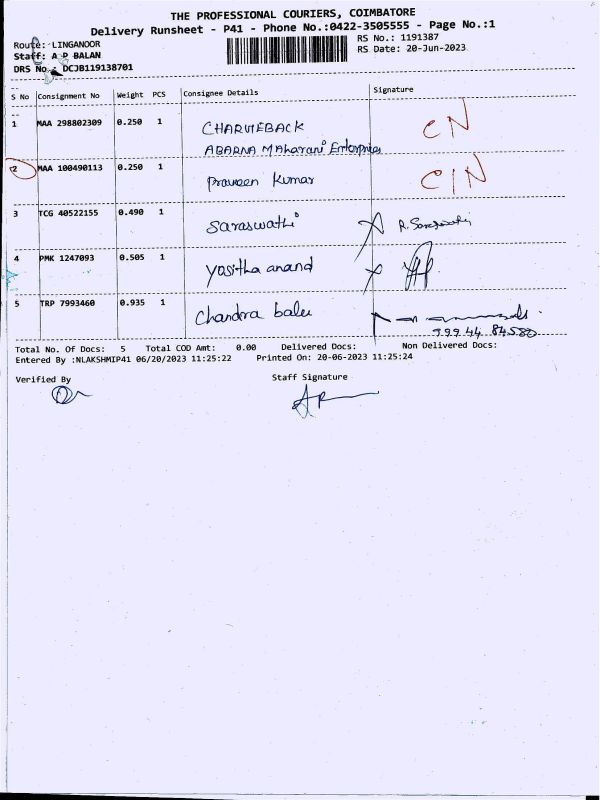 THE PROFESSIONAL COURIERS, COIMBATORE
Delivery Runsheet - P41 - Phone No.:0422-3505555 - Page No.:1
Route: LINGANOOR
RS No.: 1191387
Staff: A P BALAN
RS Date: 20-Jun-2023
DRS No.: DCJB119138701
S No Consignment No Weight PCS Consignee Details Signature
1 MAA 298802309 0.250 1 CHARVIEBACK CN
ABARNA MAharani Enterprises
2 MAA 100490113 0.250 1 Praveen Kumar CIN
3 TCG 40522155 0.490 1 Saraswathi
4 PMK 1247093 0.505 1 Yasitha anand
5 TRP 7993460 0.935 1 Chandra balu
999 44 84580
Total No. Of Docs: 5 Total COD Amt: 0.00 Delivered Docs: Non Delivered Docs:
Entered By :NLAKSHMIP41 06/20/2023 11:25:22 Printed On: 20-06-2023 11:25:24
Verified By Staff Signature